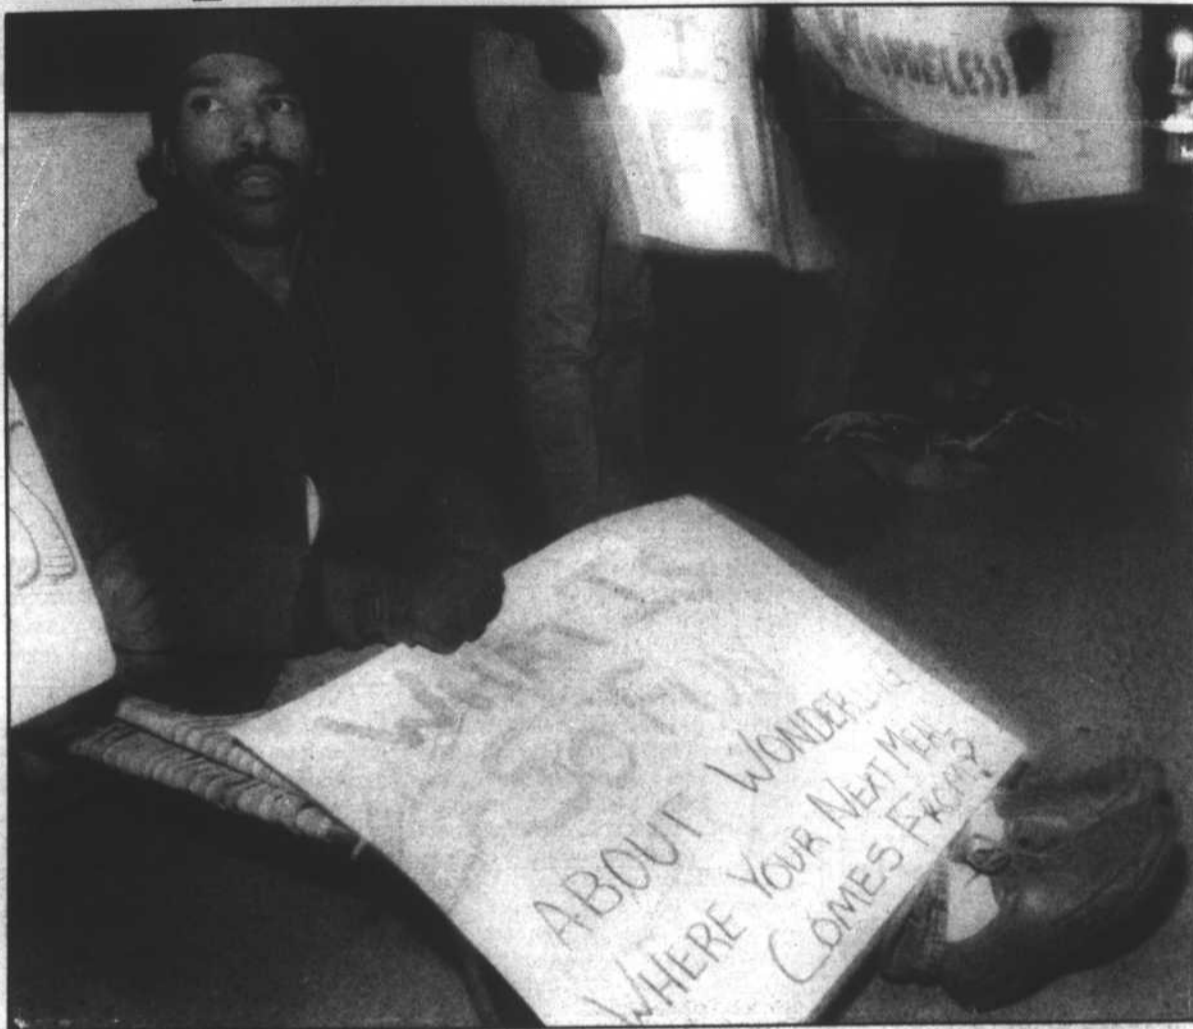 HOMELESS
WHAT IS
SO FUN
ABOUT WONDERING
WHERE YOUR NEXT MEAL
COMES FROM?